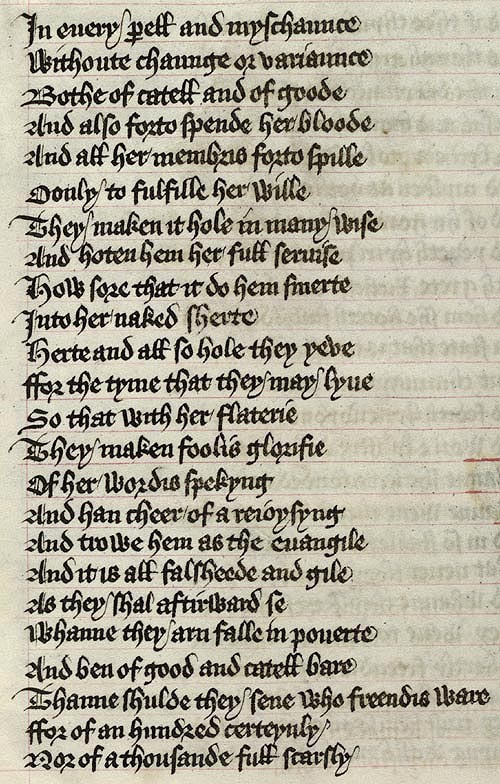 In euery perell and myschaunce
Withoute chaunge or variaunce
Bothe of catell and of goode
And also forto spende her bloode
And all her membris forto spille
Oonly to fulfille her wille
They maken it hole in many wise
And hoten hem her full seruise
How sore that it do hem smerte
Into her naked sherte
Herte and all so hole they yeve
ffor the tyme that they may lyue
So that with her flaterie
They maken foolis glorifie
Of her wordis spekyng
And han cheer of a reioysyng
And trowe hem as the euangile
And it is all falsheede and gile
As they shal aftirward se
Whanne they arn falle in pouerte
And ben of good and catell bare
Thanne shulde they sene who freendis ware
ffor of an hundred certeynly
Nor of a thousande full scarsly